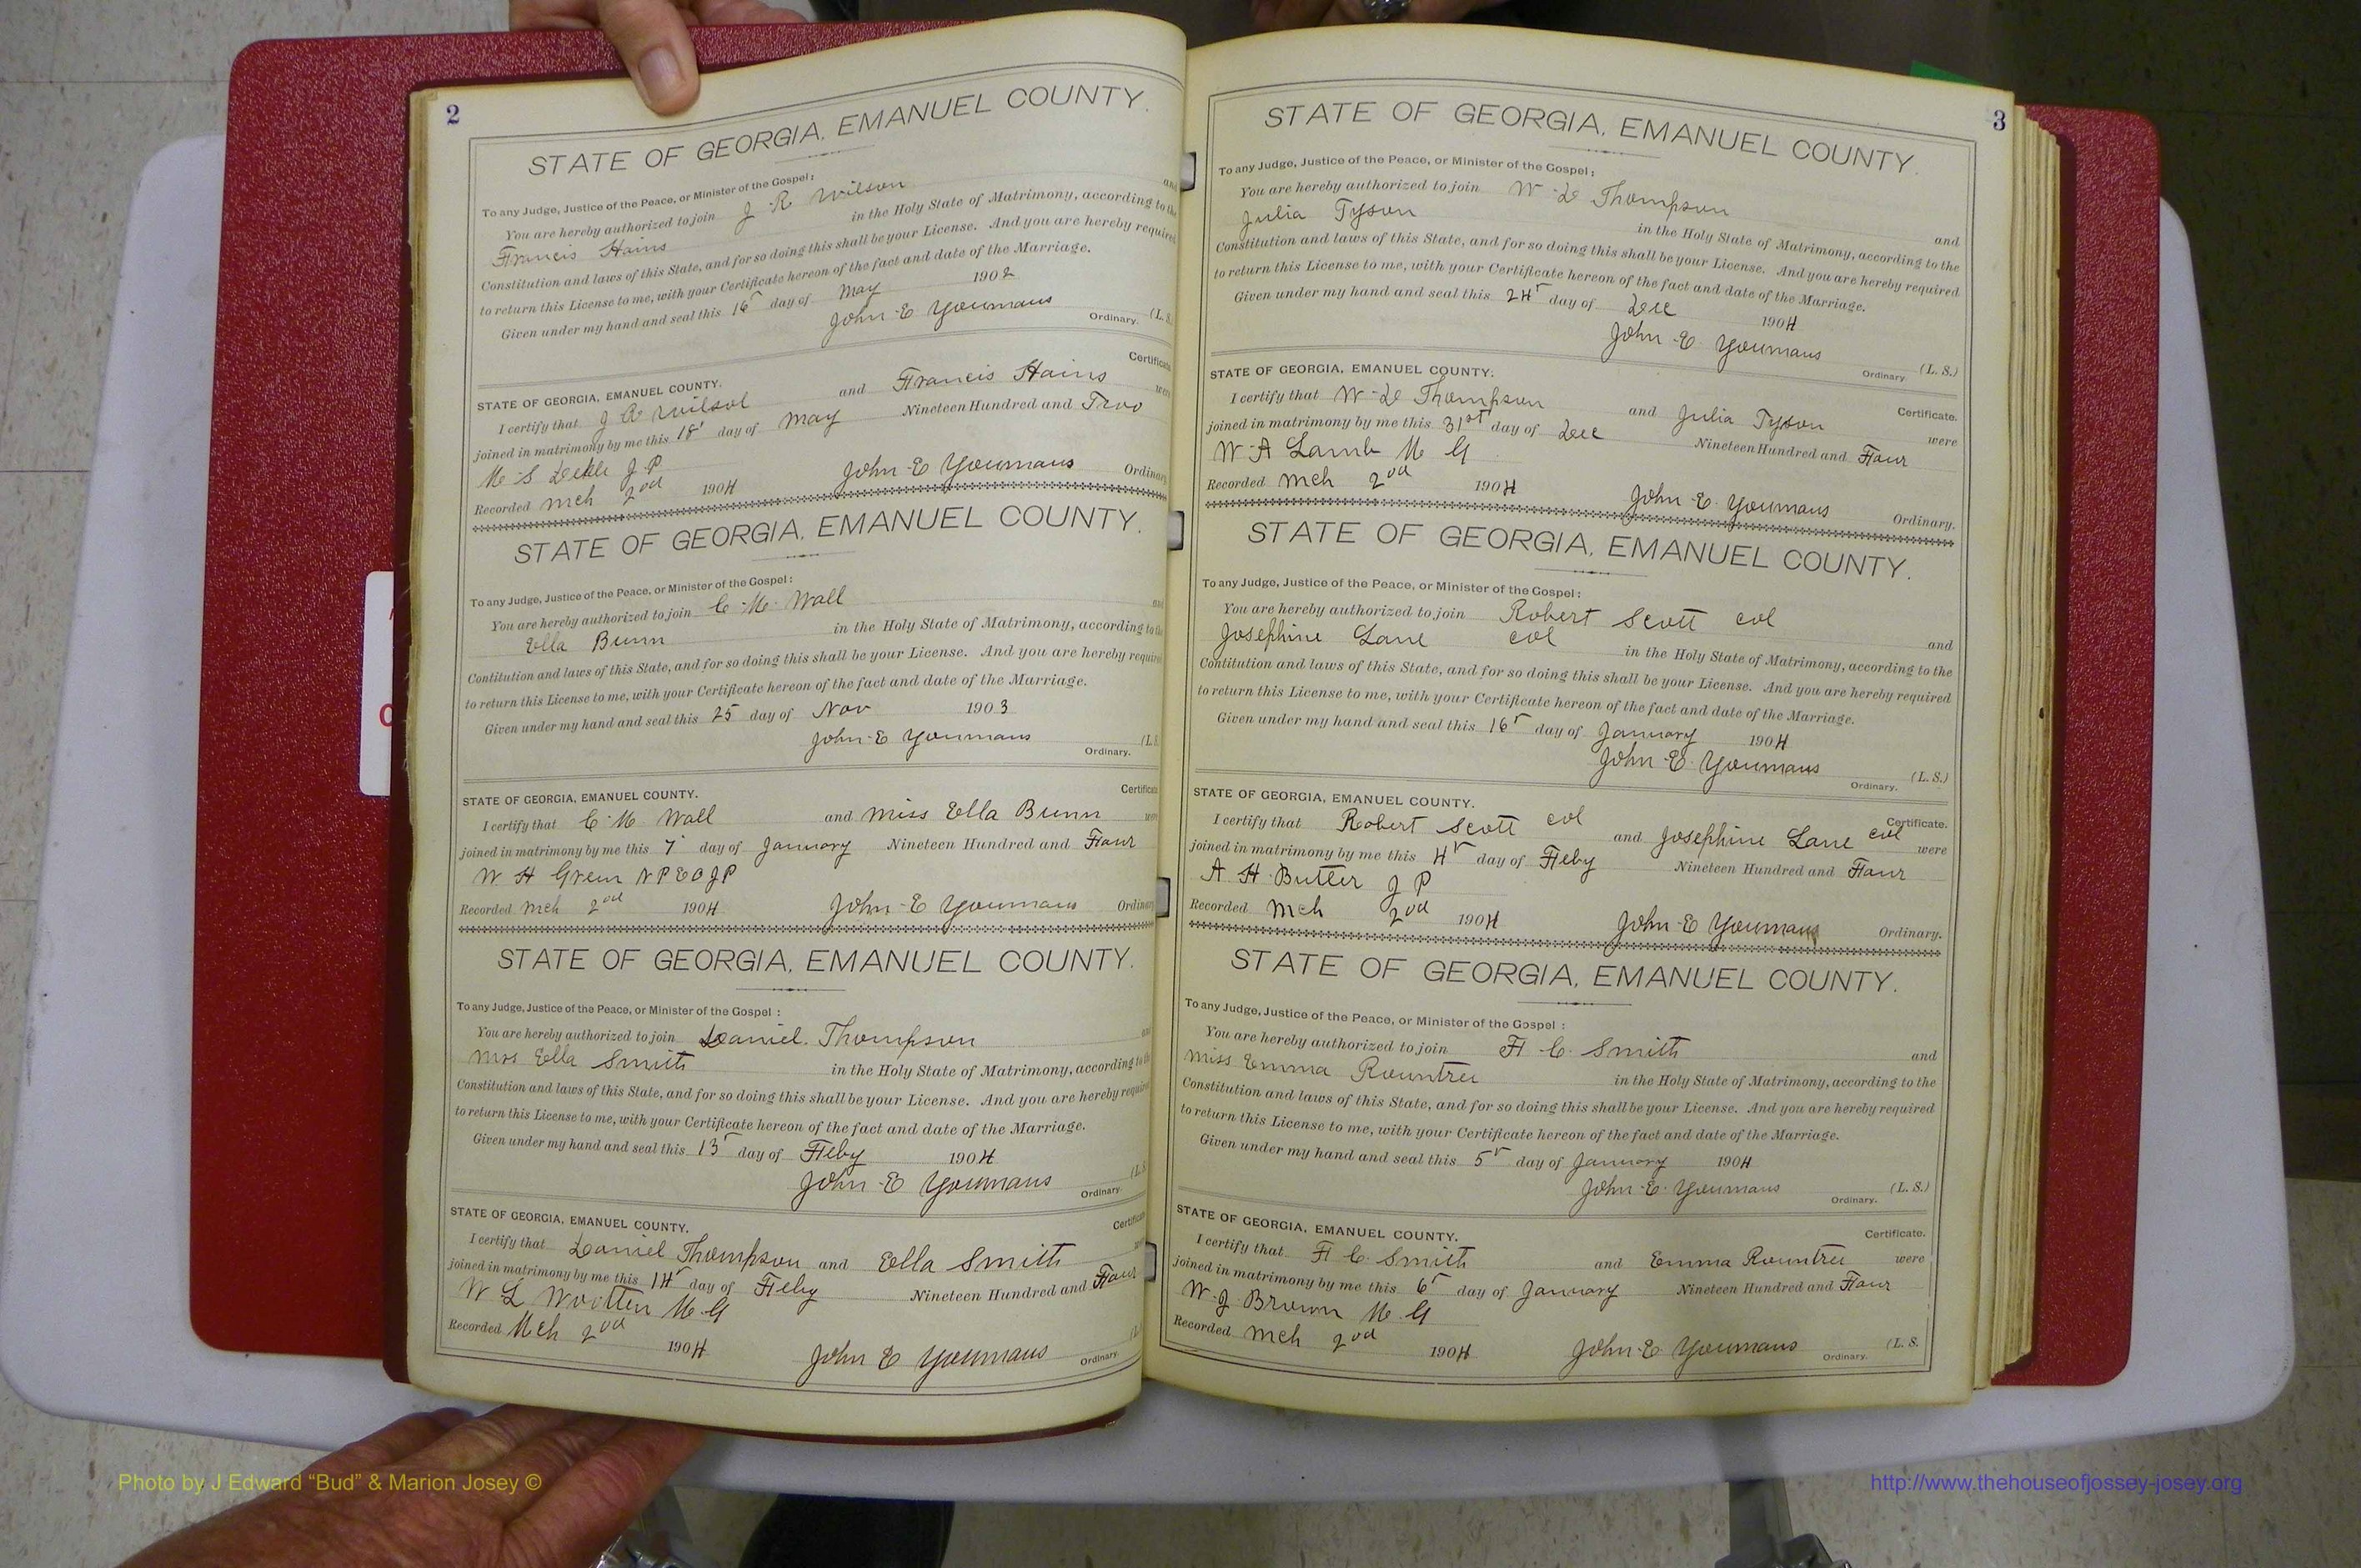 2
STATE OF GEORGIA, EMANUEL COUNTY.
To any Judge, Justice of the Peace, or Minister of the Gospel:
You are hereby authorized to join J R Wilson and
Francis Hains in the Holy State of Matrimony, according to the
Constitution and laws of this State, and for so doing this shall be your License. And you are hereby required
to return this License to me, with your Certificate hereon of the fact and date of the Marriage.
Given under my hand and seal this 16 day of May 1902
John E Youmans Ordinary. (L. S.
STATE OF GEORGIA, EMANUEL COUNTY. Certificate
I certify that J R Wilsol and Francis Hains were
joined in matrimony by me this 18 day of May Nineteen Hundred and Two
M S J P
Recorded Mch 2nd 1904 John E Youmans Ordinary
STATE OF GEORGIA, EMANUEL COUNTY.
To any Judge, Justice of the Peace, or Minister of the Gospel:
You are hereby authorized to join C. M. Wall and
Ella Bunn in the Holy State of Matrimony, according to the
Contitution and laws of this State, and for so doing this shall be your License. And you are hereby required
to return this License to me, with your Certificate hereon of the fact and date of the Marriage.
Given under my hand and seal this 25 day of Nov 1903
John E Youmans Ordinary. (L.
STATE OF GEORGIA, EMANUEL COUNTY. Certificate
I certify that C M Wall and Miss Ella Bunn were
joined in matrimony by me this 7 day of January Nineteen Hundred and Four
W H Green N P E O J P
Recorded Mch 2nd 1904 John E Youmans Ordinary
STATE OF GEORGIA, EMANUEL COUNTY.
To any Judge, Justice of the Peace, or Minister of the Gospel:
You are hereby authorized to join Daniel Thompson and
Mrs Ella Smith in the Holy State of Matrimony, according to the
Constitution and laws of this State, and for so doing this shall be your License. And you are hereby required
to return this License to me, with your Certificate hereon of the fact and date of the Marriage.
Given under my hand and seal this 13 day of Feby 1904
John E Youmans Ordinary. (L.S
STATE OF GEORGIA, EMANUEL COUNTY. Certificate
I certify that Daniel Thompson and Ella Smith
joined in matrimony by me this 14 day of Feby Nineteen Hundred and Four
W L Wootten M G
Recorded Mch 2nd 1904 John E Youmans Ordinary.
3
STATE OF GEORGIA, EMANUEL COUNTY.
To any Judge, Justice of the Peace, or Minister of the Gospel:
You are hereby authorized to join W Thompson and
Julia Tyson in the Holy State of Matrimony, according to the
Constitution and laws of this State, and for so doing this shall be your License. And you are hereby required
to return this License to me, with your Certificate hereon of the fact and date of the Marriage.
Given under my hand and seal this 24 day of Dec 1904
John E. Youmans Ordinary (L. S.)
STATE OF GEORGIA, EMANUEL COUNTY. Certificate.
I certify that W Thompson and Julia Tyson were
joined in matrimony by me this 31st day of Dec Nineteen Hundred and Four
W A Lamb M G
Recorded Mch 2nd 1904 John E. Youmans Ordinary.
STATE OF GEORGIA, EMANUEL COUNTY.
To any Judge, Justice of the Peace, or Minister of the Gospel:
You are hereby authorized to join Robert Scott col and
Josephine Lane col in the Holy State of Matrimony, according to the
Contitution and laws of this State, and for so doing this shall be your License. And you are hereby required
to return this License to me, with your Certificate hereon of the fact and date of the Marriage.
Given under my hand and seal this 16 day of January 1904
John E. Youmans Ordinary. (L. S.)
STATE OF GEORGIA, EMANUEL COUNTY. Certificate.
I certify that Robert Scott col and Josephine Lane col were
joined in matrimony by me this 4 day of Feby Nineteen Hundred and Four
A H Butler J P
Recorded Mch 2nd 1904 John E Youmans Ordinary.
STATE OF GEORGIA, EMANUEL COUNTY.
To any Judge, Justice of the Peace, or Minister of the Gospel:
You are hereby authorized to join F C. Smith and
Miss Emma Rountree in the Holy State of Matrimony, according to the
Constitution and laws of this State, and for so doing this shall be your License. And you are hereby required
to return this License to me, with your Certificate hereon of the fact and date of the Marriage.
Given under my hand and seal this 5 day of January 1904
John E. Youmans Ordinary. (L. S.)
STATE OF GEORGIA, EMANUEL COUNTY. Certificate.
I certify that F C. Smith and Emma Rountree were
joined in matrimony by me this 6 day of January Nineteen Hundred and Four
W. J Brown M. G
Recorded Mch 2nd 1904 John E Youmans Ordinary. (L. S.
Photo by J Edward “Bud” & Marion Josey ©
http://www.thehouseofjossey-josey.org